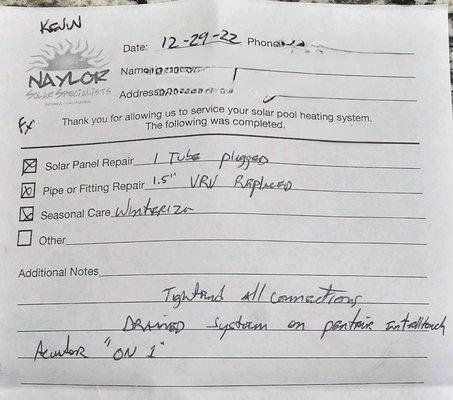 KEVIN
NAYLOR
SOLAR SPECIALISTS
NEVADA · CALIFORNIA
Date: 12-29-22 Phone
Name
Address
Fx
Thank you for allowing us to service your solar pool heating system.
The following was completed.
Solar Panel Repair 1 Tube plugged
Pipe or Fitting Repair 1.5" VRV Replaced
Seasonal Care Winterize
Other
Additional Notes
Tightend all connections
DRAINED system on pentair Intellitouch
Acuator "ON 1"